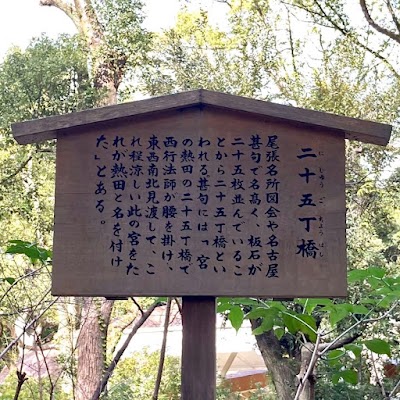 二十五丁橋
にじゅうごちょうばし
尾張名所図会や名古屋
甚句で名高く、板石が
二十五枚並んでいるこ
とから二十五丁橋とい
われる甚句には「宮
の熱田の二十五丁橋で
西行法師が腰を掛け、
東西南北見渡して、こ
れ程涼しい此の宮をた
れが熱田と名を付け
た」とある。